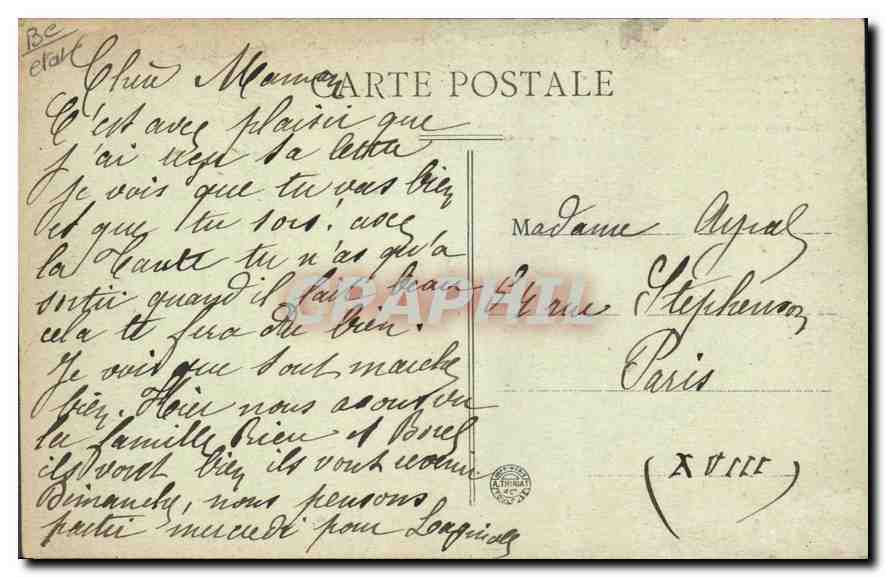 BE
etat
CARTE POSTALE
Chère Maman
C'est avec plaisir que
j'ai reçu ta lettre
je vois que tu vas bien
et que tu sors! avec
la Tante tu n'as qu'à
sortir quand il fait beau
cela te fera du bien.
Je vois que tout marche
bien. Hier nous avons vu
la famille Rieu et Borel
ils vont bien ils vont venir
Dimanche, nous pensons
partir mercredi pour
Madame Ayral
rue Stephenson
Paris
(XVIII)
A. THIRIAT
GRAPHIL